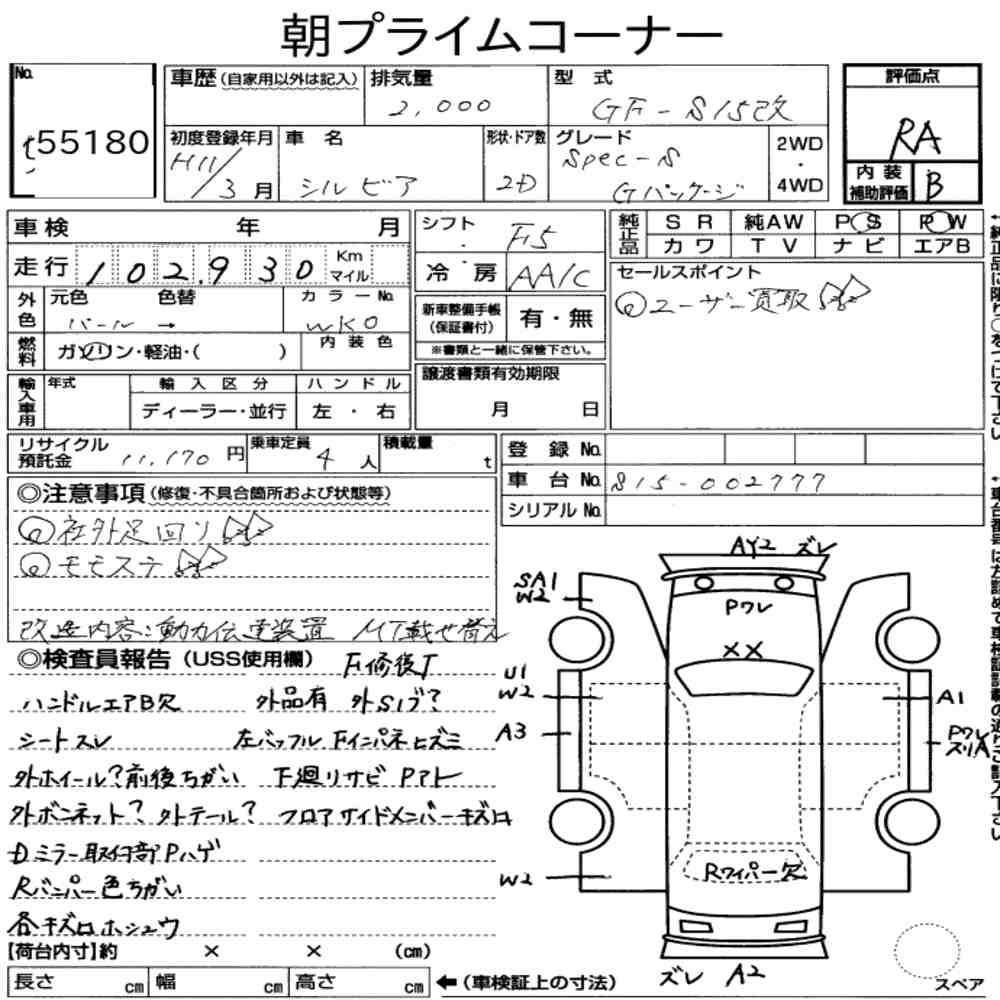 朝プライムコーナー
No.
55180
車歴 (自家用以外は記入)
排気量
2,000
型 式
GF-S15改
評価点
RA
初度登録年月
H11/3月
車 名
シルビア
形状・ドア数
2D
グレード
Spec-S
Gパッケージ
2WD
・
4WD
内装補助評価
B
車検 年 月
走行 102,930 Km マイル
外色
元色 色替
パール →
カラーNo.
WK0
燃料
ガソリン・軽油・( )
内装色
輸入車用
年式
輸入区分
ディーラー・並行
ハンドル
左・右
シフト
F5
冷房 AA/C
新車整備手帳
(保証書付)
有・無
※書類と一緒に保管下さい。
譲渡書類有効期限
月 日
純正品
SR 純AW PS PW
カワ TV ナビ エアB
セールスポイント
ユーザー買取
リサイクル預託金 11,170円
乗車定員 4人
積載量 t
登録No.
車台No. S15-002777
シリアルNo.
◎注意事項 (修復・不具合箇所および状態等)
社外足回り
モモステ
改造内容:動力伝達装置 MT載せ替え
◎検査員報告 (USS使用欄) F修復了
ハンドルエアB欠 外品有 外SIブ?
シートスレ 左バッフル Fインパネヒズミ
外ホイール?前後ちがい 下廻りサビ Pアト
外ボンネット? 外テール? フロアサイドメンバーキズ凹
Dミラー取付部Pハゲ
Rバンパー色ちがい
各キズ凹ホシュウ
【荷台内寸】約 × × (cm)
長さ cm 幅 cm 高さ cm
←(車検証上の寸法)
AY2 ズレ
SA1
W2
Pワレ
××
U1
W2
A1
A3
Pワレ
スリA
W2
Rワイパー欠
ズレ A2
スペア